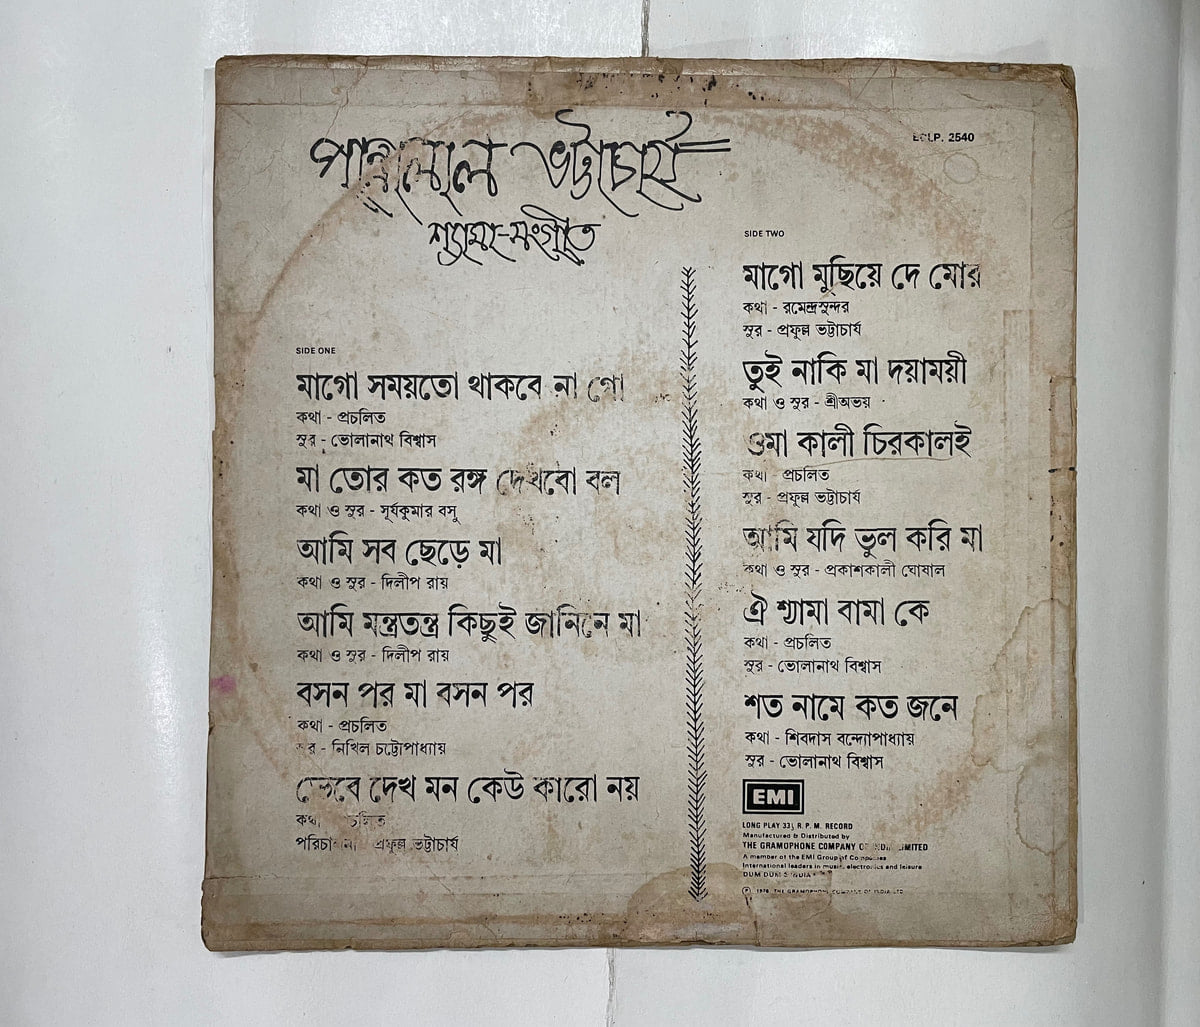 পান্নালাল ভট্টাচার্য
শ্যামা-সংগীত
ECLP. 2540
SIDE ONE
মাগো সময়তো থাকবে না গো
কথা - প্রচলিত
সুর - ভোলানাথ বিশ্বাস
মা তোর কত রঙ্গ দেখবো বল
কথা ও সুর - সূর্যকুমার বসু
আমি সব ছেড়ে মা
কথা ও সুর - দিলীপ রায়
আমি মন্ত্রতন্ত্র কিছুই জানিনে মা
কথা ও সুর - দিলীপ রায়
বসন পর মা বসন পর
কথা - প্রচলিত
সুর - নিখিল চট্টোপাধ্যায়
ভেবে দেখ মন কেউ কারো নয়
কথা প্রচলিত
পরিচালনা প্রফুল্ল ভট্টাচার্য
SIDE TWO
মাগো মুছিয়ে দে মোর
কথা - রমেন্দ্রসুন্দর
সুর - প্রফুল্ল ভট্টাচার্য
তুই নাকি মা দয়াময়ী
কথা ও সুর - শ্রীঅভয়
ওমা কালী চিরকালই
কথা - প্রচলিত
সুর - প্রফুল্ল ভট্টাচার্য
আমি যদি ভুল করি মা
কথা ও সুর - প্রকাশকালী ঘোষাল
ঐ শ্যামা বামা কে
কথা - প্রচলিত
সুর - ভোলানাথ বিশ্বাস
শত নামে কত জনে
কথা - শিবদাস বন্দ্যোপাধ্যায়
সুর - ভোলানাথ বিশ্বাস
EMI
LONG PLAY 33⅓ R. P. M. RECORD
Manufactured & Distributed by
THE GRAMOPHONE COMPANY OF INDIA LIMITED
A member of the EMI Group of Companies
International leaders in music, electronics and leisure
DUM DUM INDIA
THE GRAMOPHONE COMPANY OF INDIA LTD